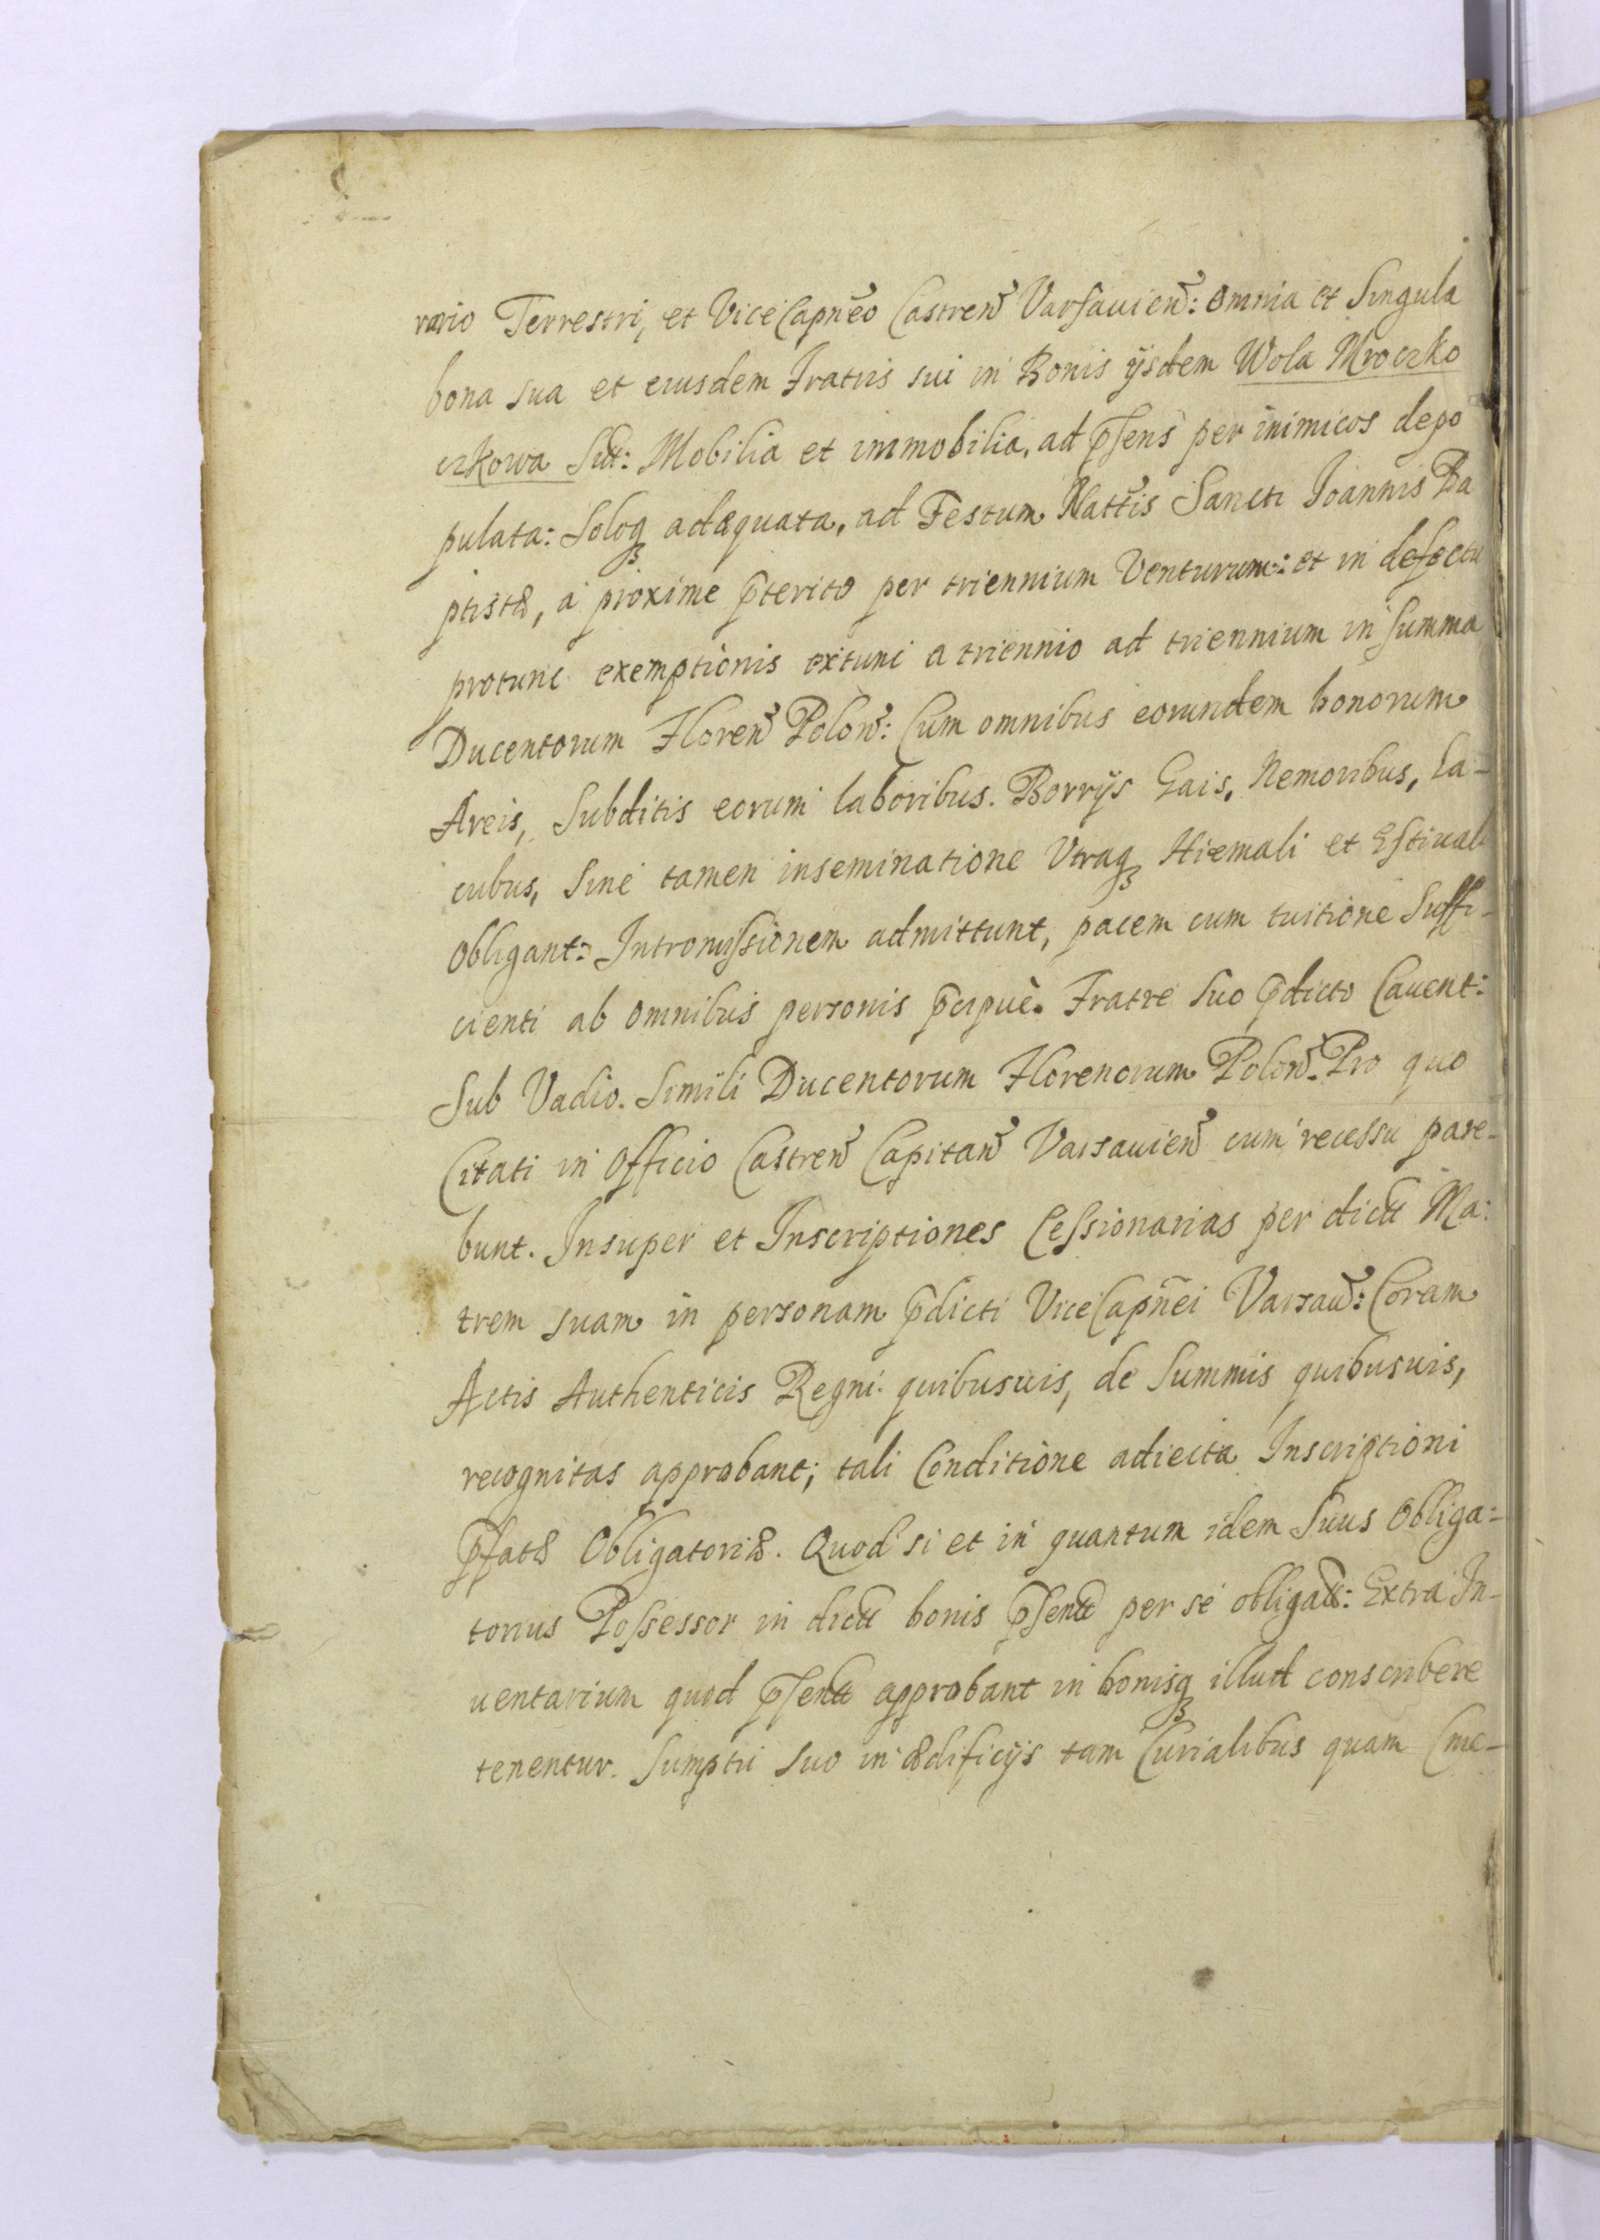 rario Terrestri, et ViceCapñeo Castreñ Varsavieñ: omnia et Singula
bona sua et eiusdem Fratris sui in Bonis ijsdem Wola Mroczko
czkowa Sitt: Mobilia et immobilia, ad p̄sens per inimicos depo
pulata: Soloq₃ adæquata, ad Festum Natt̃is Sancti Joannis Ba
ptistæ, à proxime p̄terito per triennium Venturum: et in defectu
protunc exemptionis extunc a triennio ad triennium in Summa
Ducentorum Floreñ Poloñ: Cum omnibus eorundem bonorum
Areis, Subditis eorum laboribus. Borrijs Gais, Nemoribus, La-
cubus, Sine tamen inseminatione Vtraq₃ Hiemali et Estivali
Obligant: Intromissionem admittunt, pacem cum tuitione Suffi-
cienti ab omnibus personis p̄cipuè. Fratre Suo p̄dicto Cavent:
Sub Vadio. Simili Ducentorum Florenorum Poloñ. Pro quo
Citati in Officio Castreñ Capitañ Varsavieñ cum recessu pare-
bunt. Insuper et Inscriptiones Cessionarias per dictã Ma:
trem suam in personam p̄dicti ViceCapñei Varsav̄: Coram
Actis Authenticis Regni quibusvis, de Summis quibusuis,
recognitas approbant; tali Conditione adiecta Inscriptioni
p̄fatæ Obligatoriæ. Quod si et in quantum idem Suus Obliga:
torius Possessor in dictt bonis p̄sentt per se obligatt: Extra In-
uentarium quod p̄sentt approbant in bonisq₃ illud conscribere
tenentur. Sumptu Suo in ædificijs tam Curialibus quam Cme-